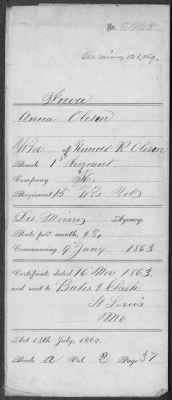 No.
Des Moines
Iowa
Anna Oleson
Wid. of Knud R. Oleson
Rank 1st Sergeant
Company
Regiment 15 Wis Vols
Des Moines Agency.
Rate per month, $ 8
Commencing 9 Jany 1863
Certificate dated 16 Nov 1863,
and sent to Bates & Clark
St Louis
Mo
Act 14th July, 1862.
Book A Vol. 2 Page 37